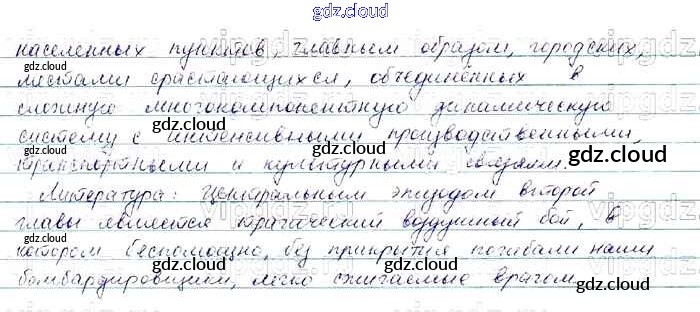 gdz.cloud
населенных пунктов, главным образом, городских,
местами срастающихся, объединённых в
сложную многокомпонентную динамическую
систему с интенсивными производственными,
транспортными и культурными связями.
Литература: Центральным эпизодом второй
главы является трагический воздушный бой, в
котором беспомощно, без прикрытия погибали наши
бомбардировщики, легко сжигаемые врагом.